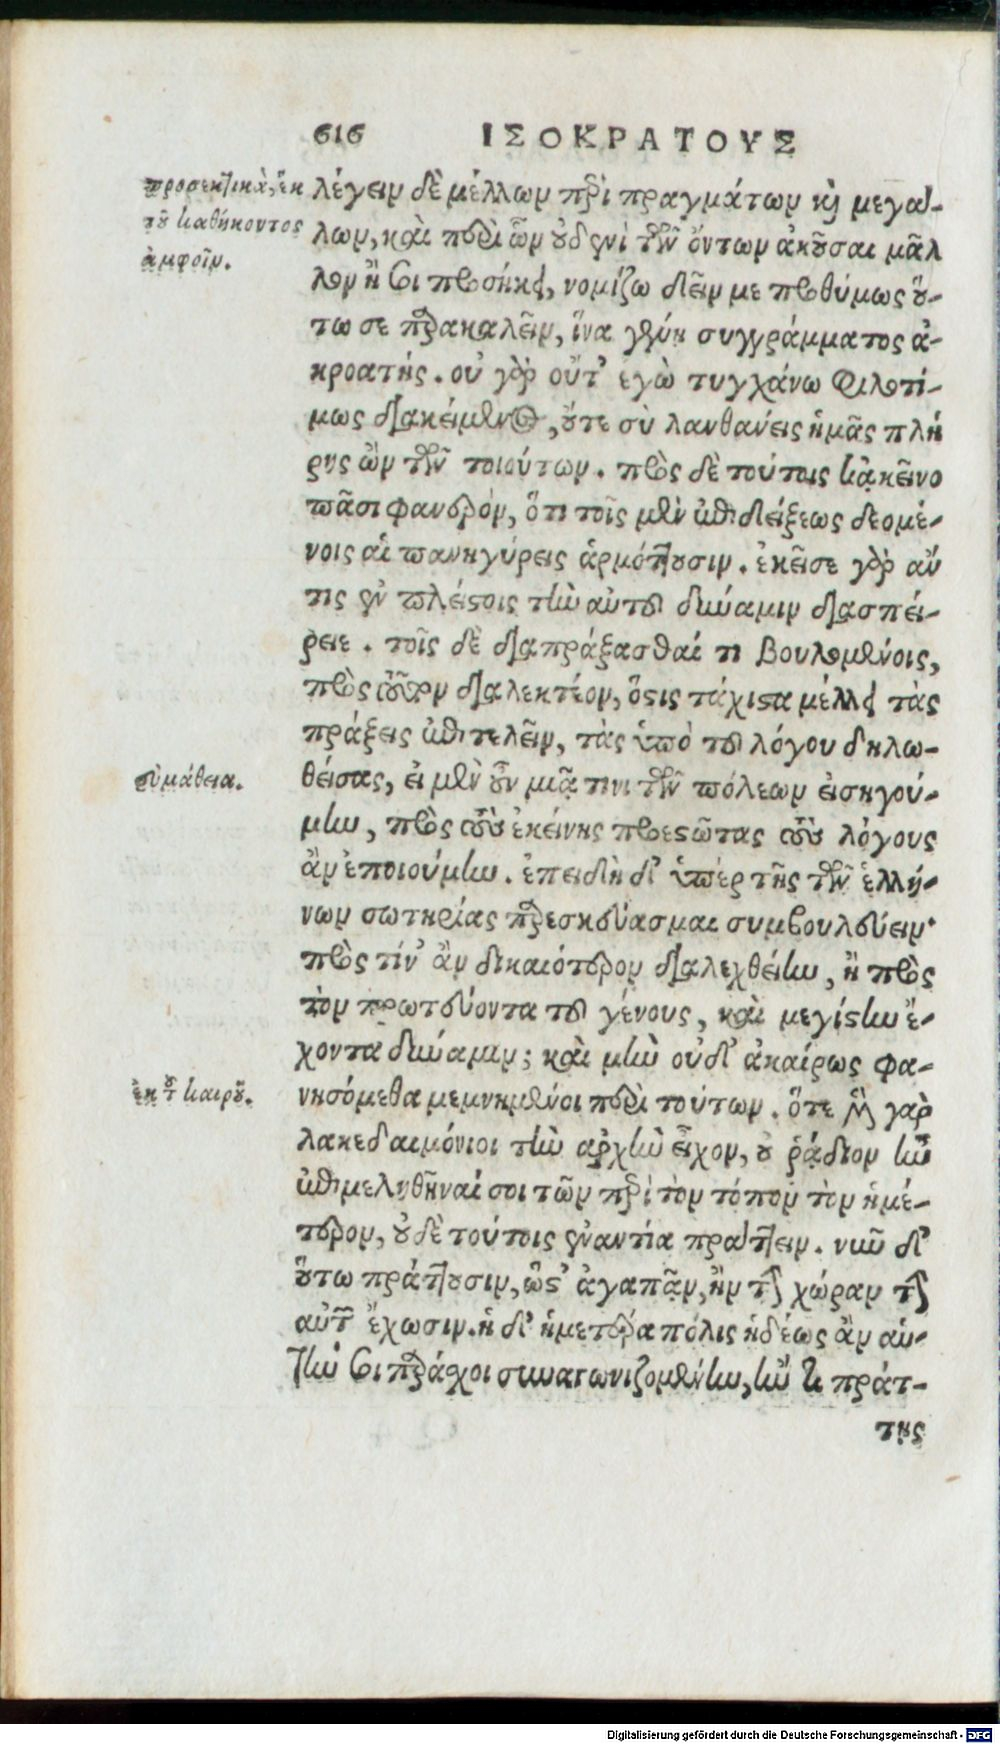 616 ΙΣΟΚΡΑΤΟΥΣ
προσεκτικὰ, ἐκ
τοῦ καθήκοντος
ἀμφοῖν.
λέγειν δὲ μέλλων περὶ πραγμάτων καὶ μεγά-
λων, καὶ περὶ ὧν οὐδενὶ τῶν ὄντων ἀκοῦσαι μᾶλ
λον ἢ σοι προσήκει, νομίζω δεῖν με προθύμως οὕ-
τω σε παρακαλεῖν, ἵνα γένῃ συγγράμματος ἀ-
κροατής. οὐ γὰρ οὔτ' ἐγὼ τυγχάνω φιλοτί-
μως διακείμενος, οὔτε σὺ λανθάνεις ἡμᾶς πλή
ρης ὢν τῶν τοιούτων. πρὸς δὲ τούτοις κἀκεῖνο
πᾶσι φανερὸν, ὅτι τοῖς μὲν ἐπιδείξεως δεομέ-
νοις αἱ πανηγύρεις ἁρμόττουσιν. ἐκεῖσε γὰρ ἄν
τις ἐν πλείστοις τὴν αὑτοῦ δύναμιν διασπεί-
ρειε. τοῖς δὲ διαπράξασθαί τι βουλομένοις,
πρὸς τοῦτον διαλεκτέον, ὅστις τάχιστα μέλλει τὰς
πράξεις ἐπιτελεῖν, τὰς ὑπὸ τοῦ λόγου δηλω-
εὐμάθεια.
θείσας, εἰ μὲν οὖν μιᾷ τινι τῶν πόλεων εἰσηγού-
μην, πρὸς τοὺς ἐκείνης προεστῶτας τοὺς λόγους
ἂν ἐποιούμην. ἐπειδὴ δ' ὑπὲρ τῆς τῶν ἑλλή-
νων σωτηρίας παρεσκεύασμαι συμβουλεύειν·
πρὸς τίν' ἂν δικαιότερον διαλεχθείην, ἢ πρὸς
τὸν πρωτεύοντα τοῦ γένους, καὶ μεγίστην ἔ-
χοντα δύναμιν; καὶ μὴν οὐδ' ἀκαίρως φα-
ἐκ τοῦ καιροῦ.
νησόμεθα μεμνημένοι περὶ τούτων. ὅτε μὲν γὰρ
λακεδαιμόνιοι τὴν ἀρχὴν εἶχον, οὐ ῥάδιον ἦν
ἐπιμεληθῆναί σοι τῶν περὶ τὸν τόπον τὸν ἡμέ-
τερον, οὐδὲ τούτοις ἐναντία πράττειν. νῦν δ'
οὕτω πράττουσιν, ὥστ' ἀγαπᾷν, ἢν τὴν χώραν τὴν
αὑτῶν ἔχωσιν. ἡ δ' ἡμετέρα πόλις ἡδέως ἂν αὑ-
τήν σοι παράσχοι συναγωνιζομένην, ἤν τι πράτ-
της
Digitalisierung gefördert durch die Deutsche Forschungsgemeinschaft - DFG